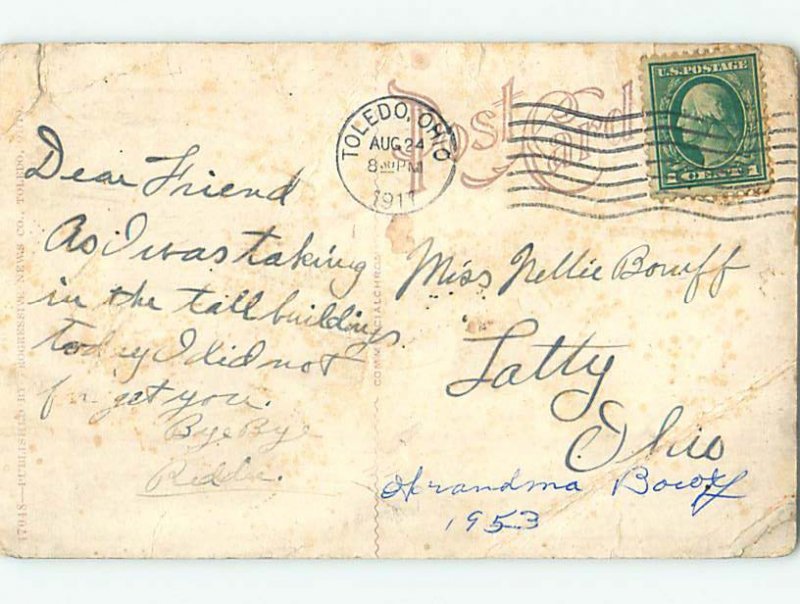 Post Card
TOLEDO, OHIO
AUG 24
8 30 PM
1911
U.S. POSTAGE
1 CENT 1
Dear Friend
As I was taking
in the tall buildings
today I did not
forget you.
Bye Bye
Miss Nellie
Latty
Ohio
Grandma
1953
COMMERCIALCHROME
17048—PUBLISHED BY PROGRESSIVE NEWS CO., TOLEDO, OHIO